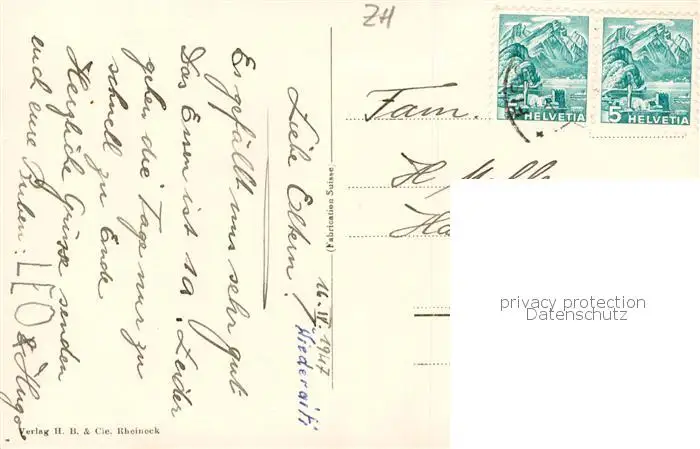 ZH
HELVETIA
5
HELVETIA
Liebe Eltern!
Es gefällt uns sehr gut
Das Essen ist 1a. Leider
gehen die Tage nur zu
schnell zu Ende
Herzliche Grüsse senden
euch eure Buben: LEO & Hugo.
16. IV. 1947
(Fabrication Suisse)
Fam.
H.
Verlag H. B. & Cie. Rheineck
privacy protection
Datenschutz